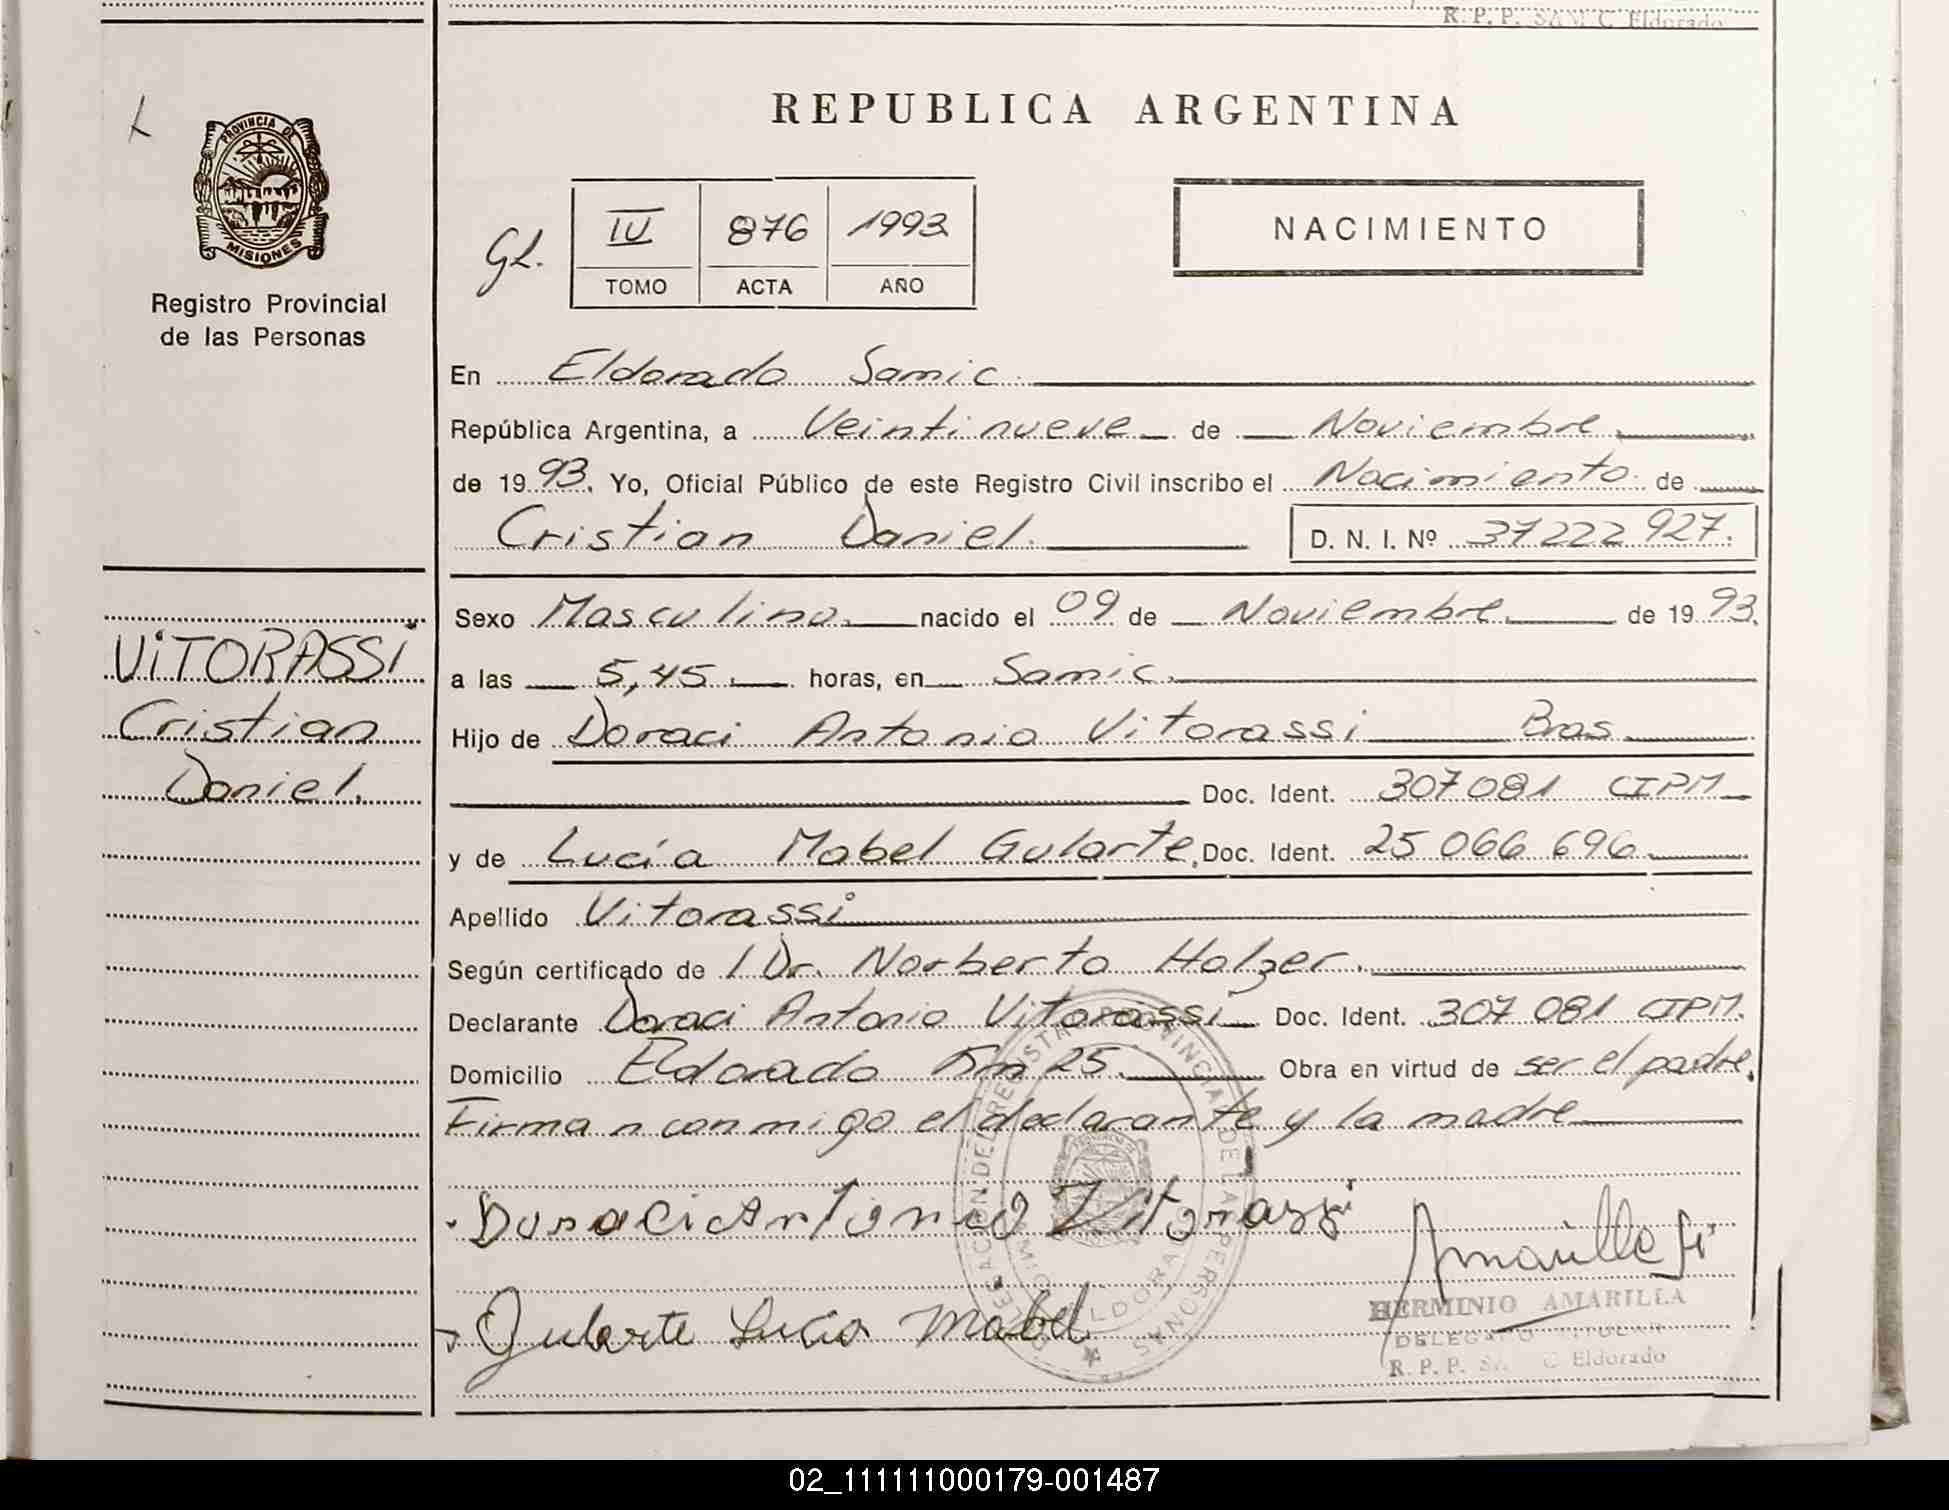 R. P. P. SAMIC Eldorado
REPUBLICA ARGENTINA
PROVINCIA DE
MISIONES
Registro Provincial
de las Personas
GL.
IV 876 1993
TOMO ACTA AÑO
NACIMIENTO
En Eldorado Samic.
República Argentina, a Veintinueve de Noviembre.
de 1993. Yo, Oficial Público de este Registro Civil inscribo el Nacimiento de
Cristian Daniel. D. N. I. Nº 37222 927.
VITORASSI
Cristian
Daniel.
Sexo Masculino. nacido el 09 de Noviembre. de 1993.
a las 5,45 horas, en Samic.
Hijo de Doraci Antonio Vitorassi Bras.
Doc. Ident. 307081 CIPM
y de Lucía Mabel Gularte, Doc. Ident. 25 066 696
Apellido Vitorassi
Según certificado del Dr. Norberto Holzer.
Declarante Doraci Antonio Vitorassi Doc. Ident. 307 081 CIPM.
Domicilio Eldorado Km 25. Obra en virtud de ser el padre.
Firman conmigo el declarante y la madre
Doraci Antonio Vitorassi
Gularte Lucia Mabel
DELEGACION DEL REGISTRO PROVINCIAL DE LAS PERSONAS
ELDORADO
Amarilla
HERMINIO AMARILLA
DELEGADO TITULAR
R. P. P. SAMIC Eldorado
02_111111000179-001487